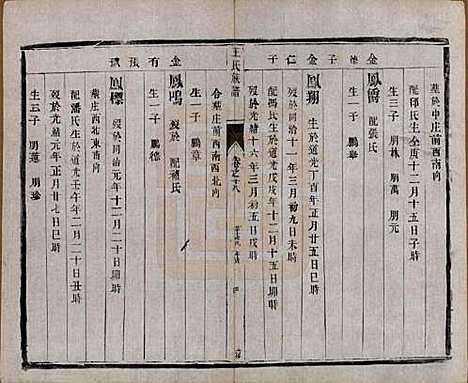 葬於中庄前西南向
配邱氏生於仝庚十二月十五日子時
生三子 朋林 朋萬 朋元
金子
鳳儒 配張氏
生一子 鵬舉
金仁子
鳳翔 生於道光丁酉年正月廿五日巳時
歿於同治十一年三月初九日未時
配馮氏生於道光戊戌年十二月十五日卯時
歿於光緒十六年三月初五日戌時
合葬庄前西南西北向
生一子 鵬章
王氏族譜
金有
鳳鳴 歿於 配穆氏
生一子 鵬德
鳳標 歿於同治元年十二月二十日卯時
葬庄西北東南向
配潘氏生於壬午年二月二十日丑時
歿於光緒元年正月廿七日巳時
生三子 朋蓮 朋珍